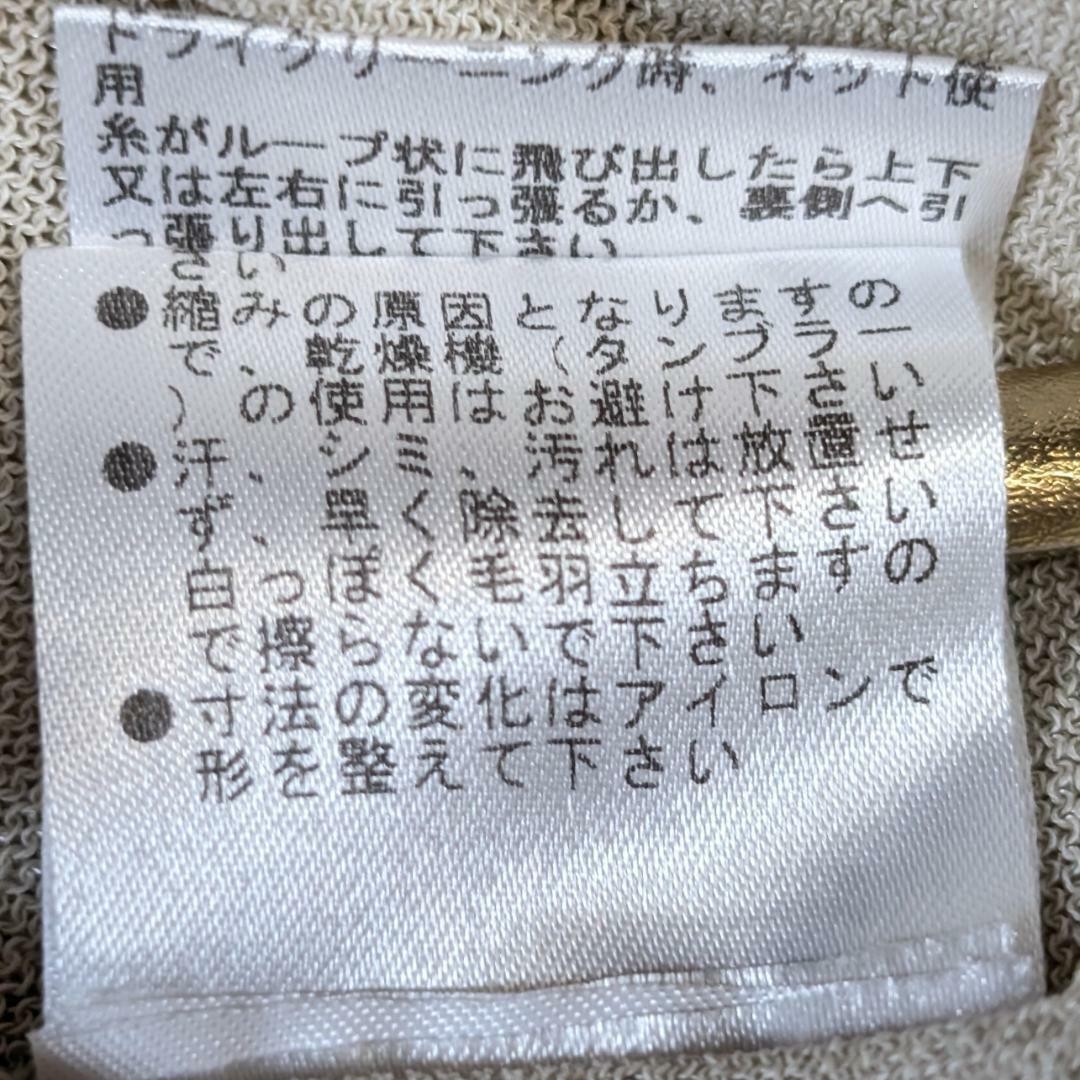 ドライクリーニング時、ネット使
用
糸がループ状に飛び出したら上下
又は左右に引っ張るか、裏側へ引
っ張り出して下さい
●縮みの原因となりますの
で、乾燥機（タンブラー
）の使用はお避け下さい
●汗、シミ、汚れは放置せ
ず、早く除去して下さい
白っぽく毛羽立ちますの
で擦らないで下さい
●寸法の変化はアイロンで
形を整えて下さい